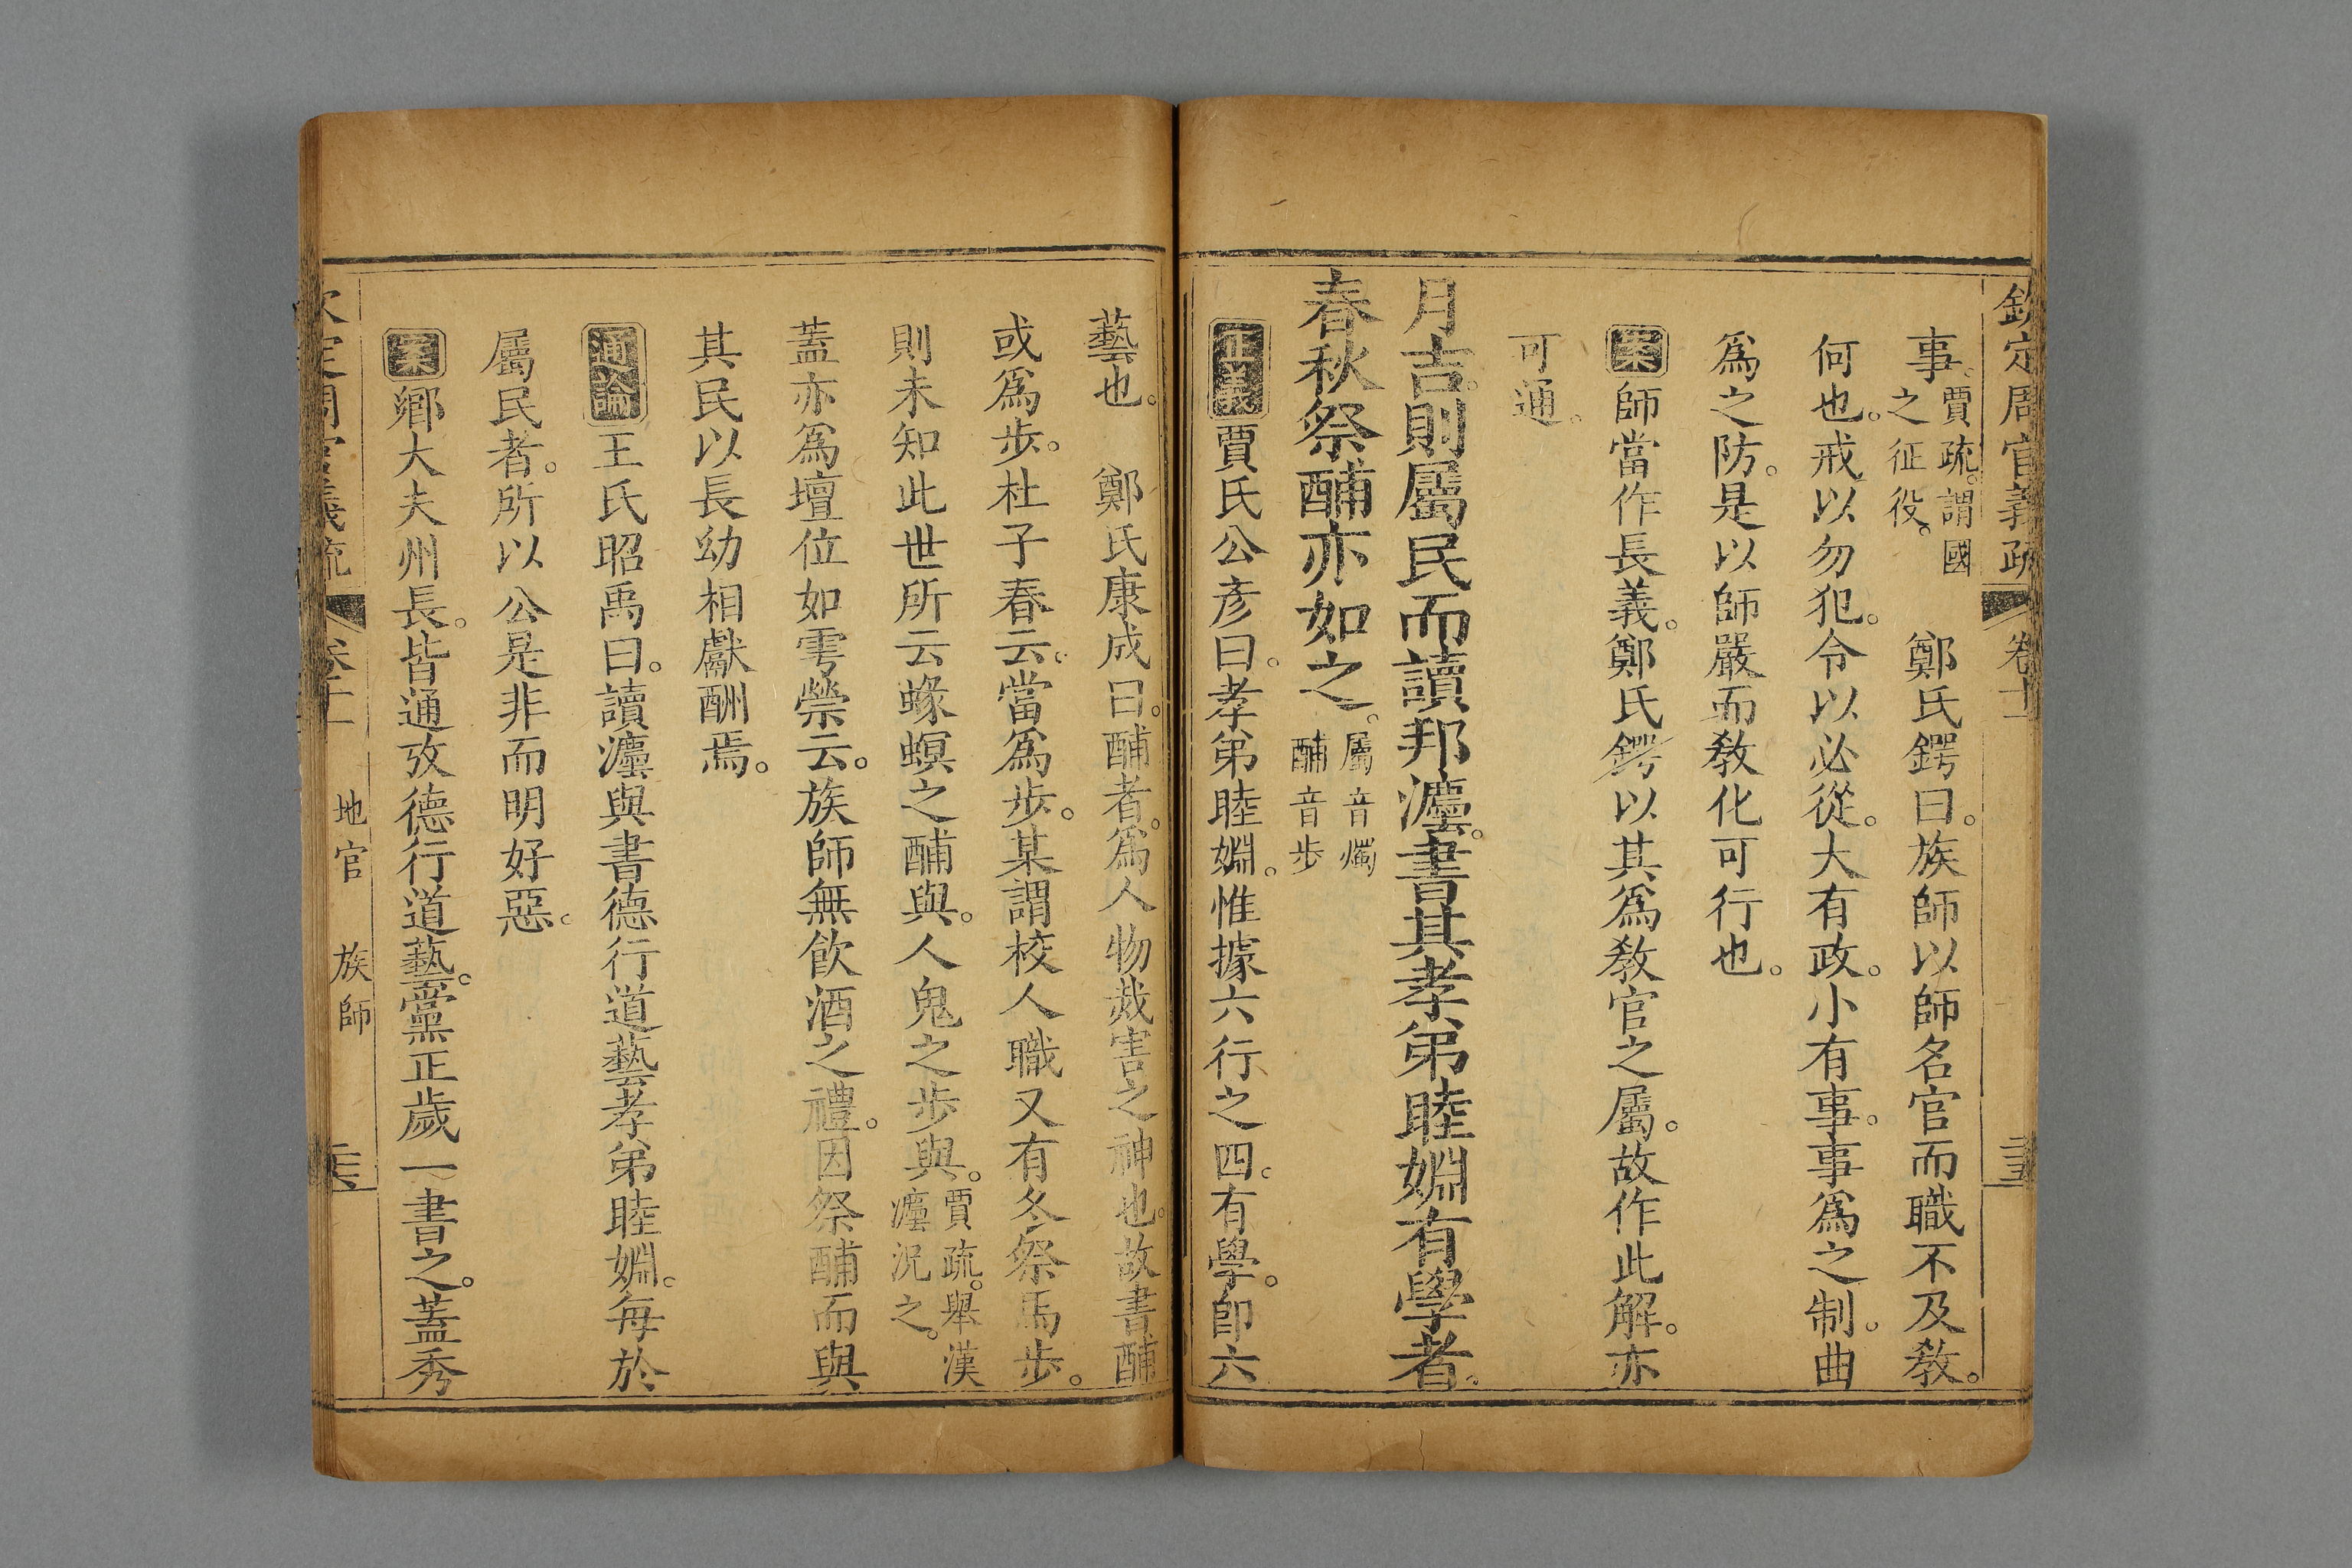 欽定周官義疏 卷十一
事。賈疏。謂國之征役。 鄭氏鍔曰。族師以師名官而職不及教。
何也。戒以勿犯。令以必從。大有政。小有事。事爲之制。曲
爲之防。是以師嚴而教化可行也。
案師當作長義。鄭氏鍔以其爲教官之屬。故作此解。亦
可通。
月吉。則屬民而讀邦灋。書其孝弟睦婣有學者。
春秋祭酺亦如之。屬音燭酺音步
正義賈氏公彥曰。孝弟睦婣。惟據六行之四。有學。卽六
藝也。 鄭氏康成曰。酺者。爲人物烖害之神也。故書酺
或爲步。杜子春云。當爲步。某謂校人職又有冬祭馬步。
則未知此世所云蝝螟之酺與。人鬼之步與。賈疏。舉漢灋況之。
蓋亦爲壇位如雩禜云。族師無飮酒之禮。因祭酺而與
其民以長幼相獻酬焉。
通論王氏昭禹曰。讀灋與書德行道藝孝弟睦婣。每於
屬民者。所以公是非而明好惡。
案鄉大夫州長。皆通攷德行道藝。黨正歲一書之。蓋秀
欽定周官義疏 卷十一 地官 族師